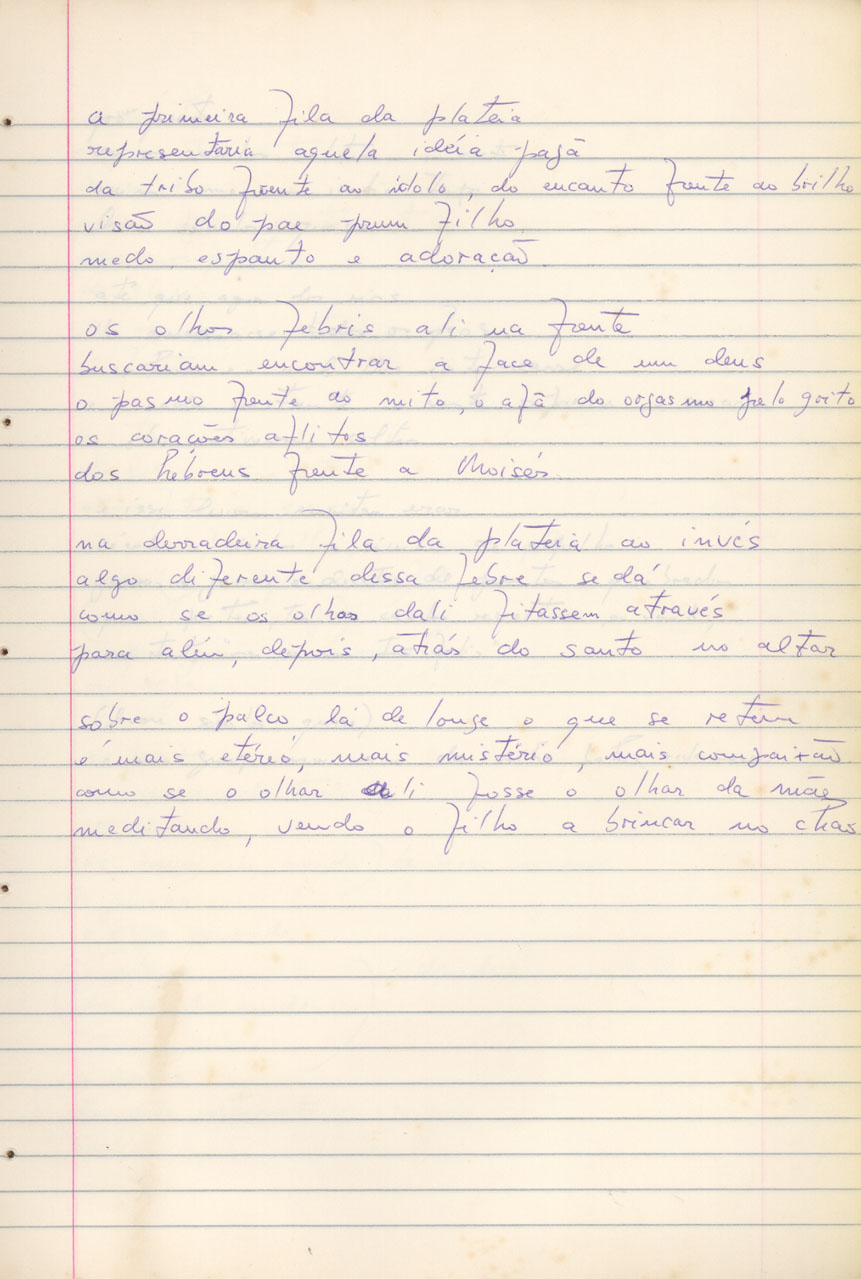 a primeira fila da plateia
representaria aquela idéia pagã
da tribo frente ao ídolo, do encanto frente ao brilho
visão do pae prum filho
medo espanto e adoração

os olhos febris ali na frente
buscariam encontrar a face de um deus
o pasmo frente ao mito, o afã do orgasmo pelo grito
os corações aflitos
dos hebreus frente a Moisés

na derradeira fila da plateia ao invés
algo diferente dessa febre se dá
como se os olhos dali fitassem através
para além, depois, atrás do santo no altar

sôbre o palco lá de longe o que se retém
é mais etéreo, mais mistério, mais compaixão
como se o olhar ali fosse o olhar da mãe
meditando, vendo o filho a brincar no chão